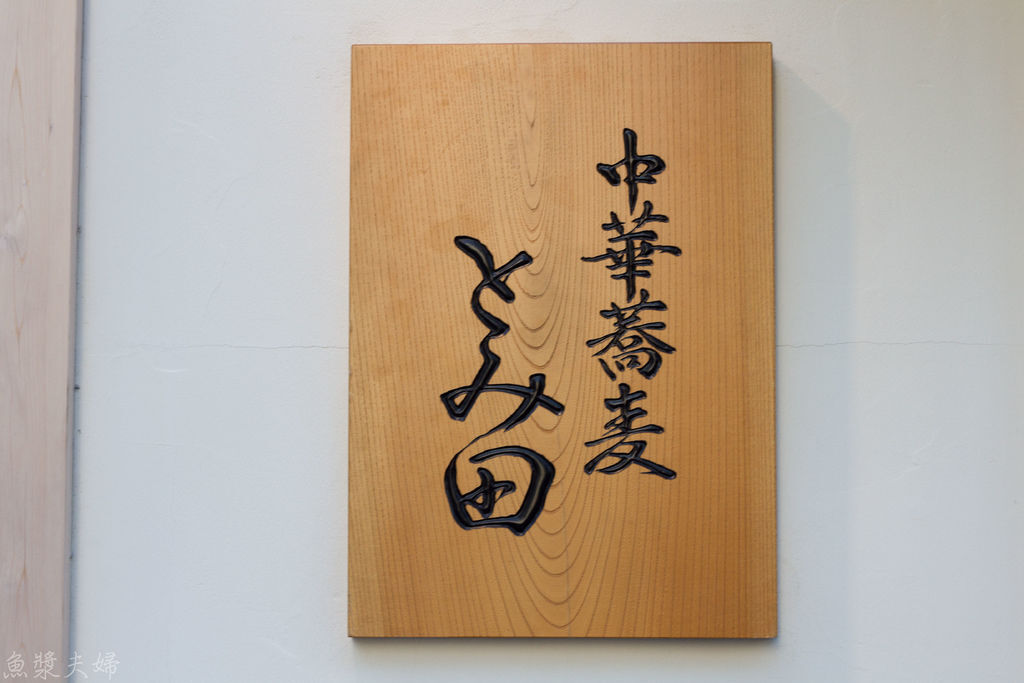 中華蕎麦
とみ田
魚漿夫婦